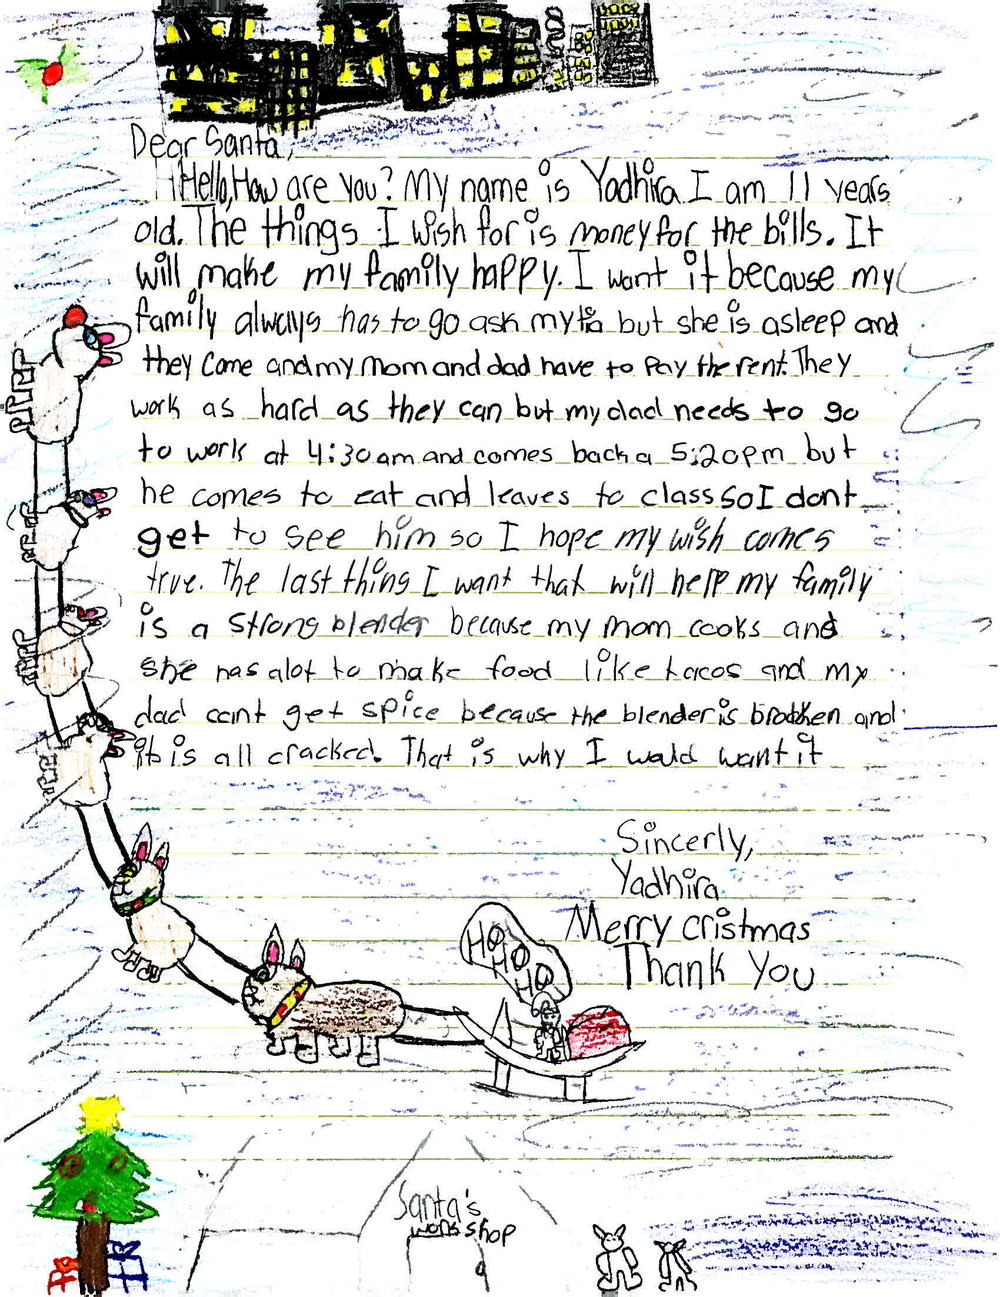 Dear Santa,
Hello, How are you? My name is Yadhira I am 11 years
old. The things I wish for is money for the bills. It
will make my family happy. I want it because my
family always has to go ask my tia but she is asleep and
they come and my mom and dad have to pay the rent. They
work as hard as they can but my dad needs to go
to work at 4:30am and comes back a 5:20pm but
he comes to eat and leaves to class so I dont
get to see him so I hope my wish comes
true. The last thing I want that will help my family
is a strong blender because my mom cooks and
she has alot to make food like tacos and my
dad cant get spice because the blender is brobken and
it is all cracked. That is why I would want it
Sincerly,
Yadhira
Merry cristmas
Thank You
HO
HO
HO
Santa's
workshop